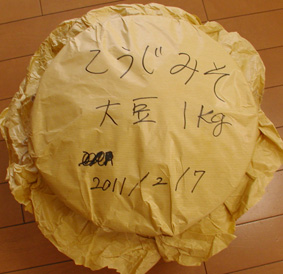 こうじみそ
大豆 1kg
2011/2/7